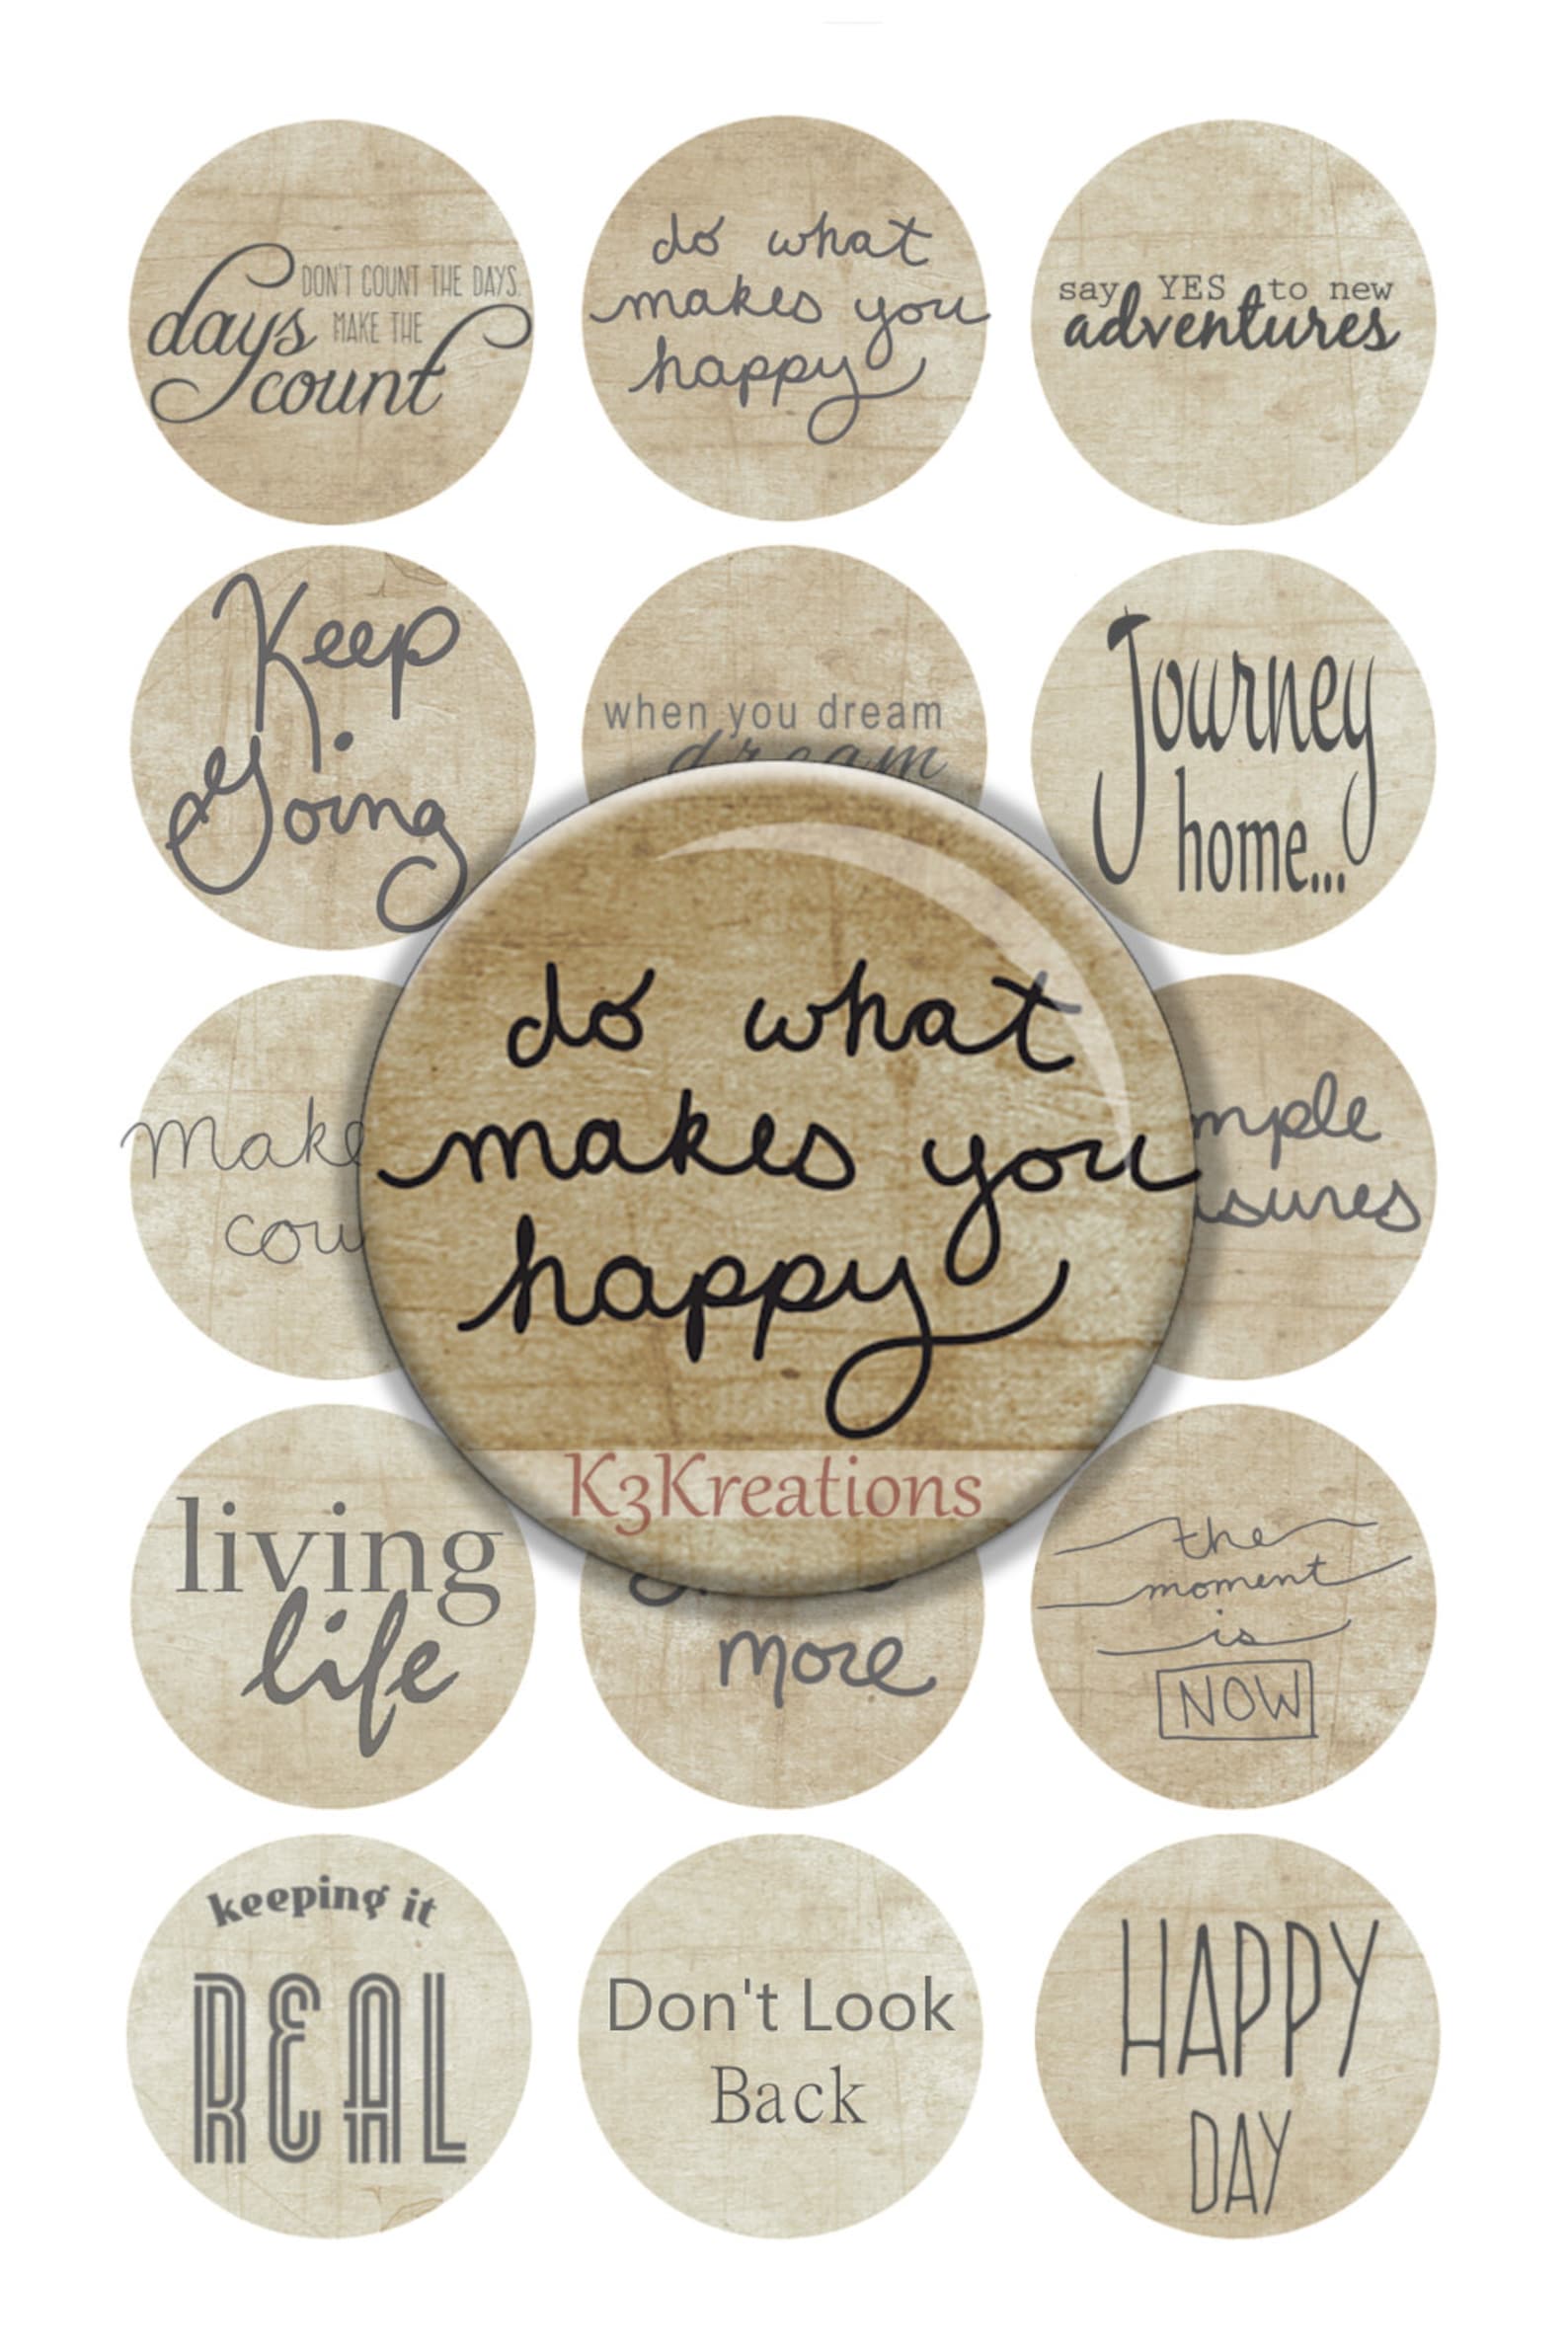 DON'T COUNT THE DAYS.
days MAKE THE
count
do what
makes you
happy
say YES to new
adventures
Keep
Going
when you dream
dream
Journey
home...
make
do what
makes you
happy
K3Kreations
living
life
more
the
moment
is
NOW
keeping it
REAL
Don't Look
Back
HAPPY
DAY